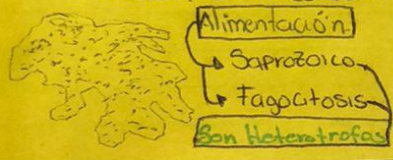 Alimentación
Saprozoico
Fagocitosis
Son Heterotrofas